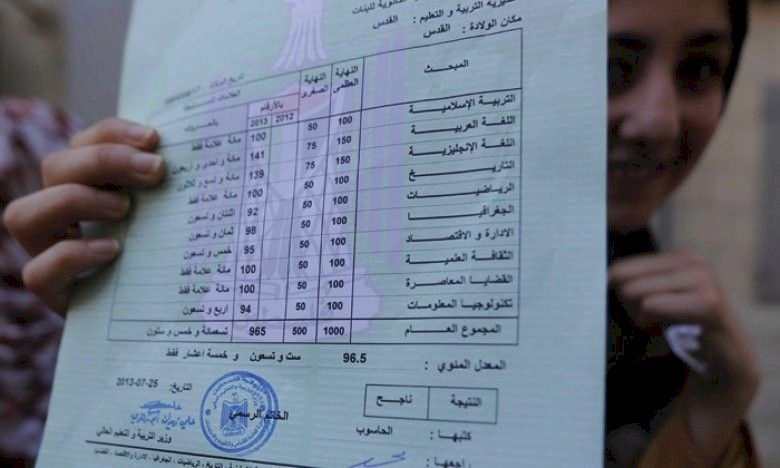 مديرية التربية و التعليم : القدس
مكان الولادة : القدس
المبحث النهاية العظمى النهاية الصغرى بالأرقام 2012 2013 بالحروف
التربية الإسلامية 100 50 100 مائة علامة فقط
اللغة العربية 150 75 141 مائة و احدى و اربعون
اللغة الإنجليزية 150 75 139 مائة و تسع و ثلاثون
التاريخ 100 50 100 مائة علامة فقط
الرياضيات 100 50 92 اثنتان و تسعون
الجغرافيا 100 50 98 ثمان و تسعون
الادارة و الاقتصاد 100 50 95 خمس و تسعون
الثقافة العلمية 100 50 100 مائة علامة فقط
القضايا المعاصرة 100 50 100 مائة علامة فقط
تكنولوجيا المعلومات 100 50 94 اربع و تسعون
المجموع العام 1000 500 965 تسعمائة و خمس و ستون
المعدل المئوي : 96.5 ست و تسعون و خمسة اعشار فقط
النتيجة ناجح
التاريخ: 25-07-2013
كتبها : الحاسوب
الخاتم الرسمي
وزير التربية و التعليم العالي
راجعها :